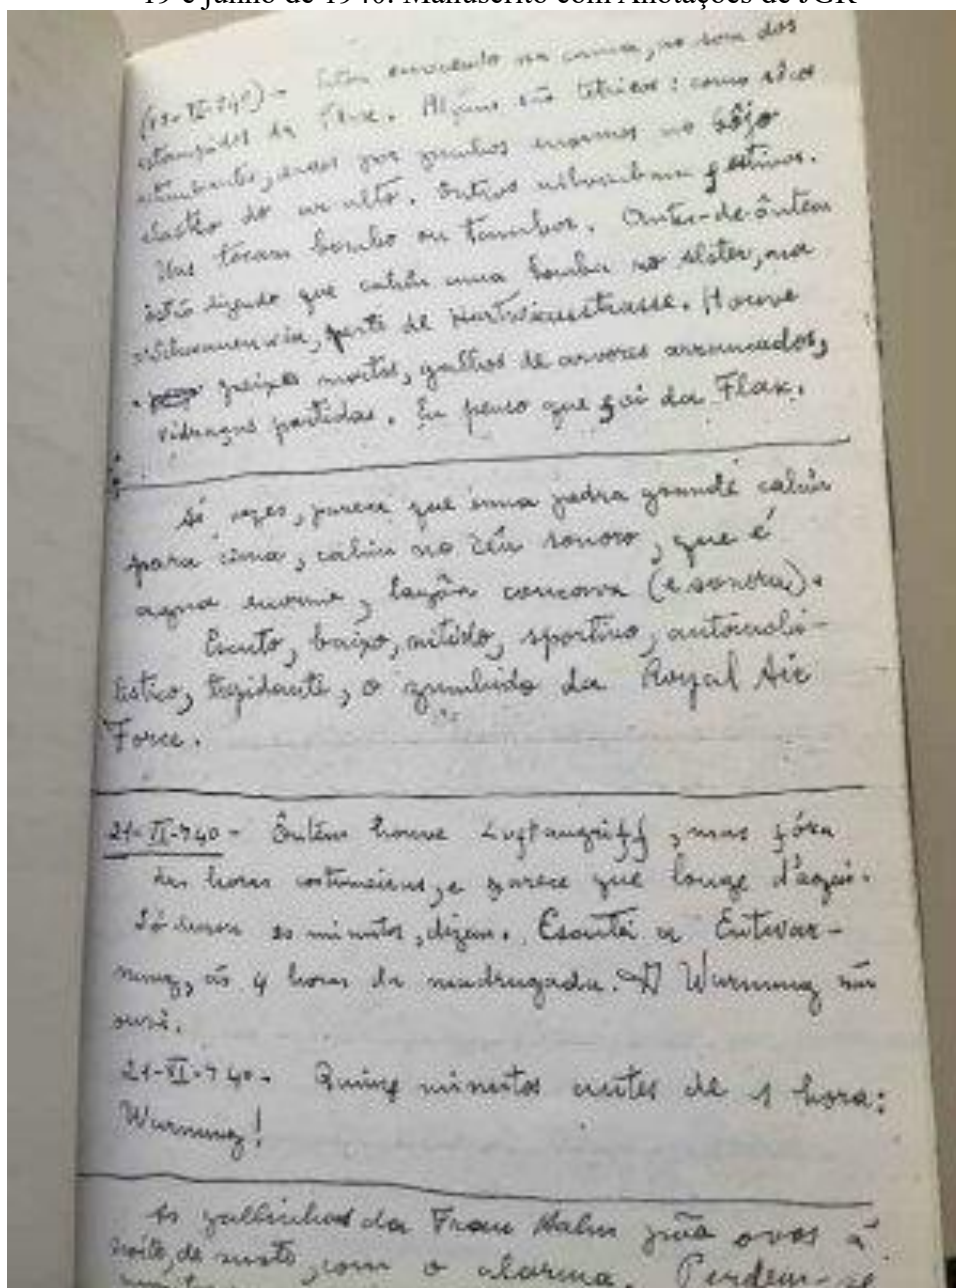 19 e junho de 1940. Manuscrito com Anotações de JGR
(19-VI-940) - Estou escrevendo na cama, ao som dos
estampidos da Flak. Alguns são tétricos: como sôcos
retumbantes, dados por punhos enormes no bôjo
elastico do ar alto. Outros retumbam festivos.
Uns tocam bombo ou tambor. Antes-de-ôntem
estão dizendo que cahiu uma bomba no Alster, na
perto de Harvestehuderstrasse. Houve
peixes mortos, galhos de arvores arrancados,
vidraças partidas. Eu penso que foi da Flak.
Ás vezes, parece que uma pedra grande cahiu
para cima, cahiu no céu sonoro, que é
agua enorme, concava (e sonora).
Escuto, baixo, nitido, sportivo, automobi-
listico, trepidante, o zumbido da Royal Air
Force.
21-VI-940 - Ôntem houve Luftangriff, mas fóra
das horas costumeiras, e parece que longe d'aqui.
Só durou 20 minutos, dizem. Escutei a Entwar-
nung, ás 4 horas da madrugada. A Warnung não
ouvi.
21-VI-940. Quinze minutos antes de 1 hora:
Warnung!
As gallinhas da Frau Hahn põe ovos á
noite, de susto, com o alarma. Perdem